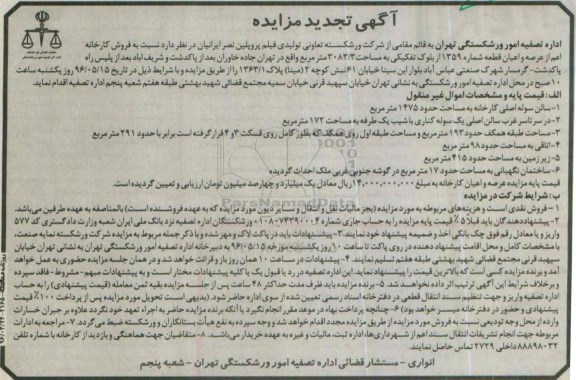 آگهی تجدید مزایده
اداره تصفیه امور ورشکستگی تهران به قائم مقامی از شرکت ورشکسته تعاونی تولیدی فیلم پروپلین نصر ایرانیان در نظر دارد نسبت به فروش کارخانه
اعم از عرصه و اعیان قطعه شماره ۱۳۵۹ از بلوک تفکیکی به مساحت ۳۰۸۳/۳ متر مربع واقع در تهران جاده خاوران بعد از پاکدشت و شریف آباد بعد از پلیس راه
پاکدشت - گرمسار شهرک صنعتی عباس آباد بلوار ابن سینا خیابان ۶۱ نبش کوچه ۲ (مینا) پلاک ۱۳۶۳/۱ را از طریق مزایده و با شرایط ذیل در تاریخ ۹۶/۰۵/۱۵ روز یکشنبه ساعت
۱۰ صبح در محل اداره تصفیه امور ورشکستگی به نشانی تهران خیابان سپهبد قرنی خیابان سمیه مجتمع قضائی شهید بهشتی طبقه هفتم شعبه پنجم اداره تصفیه اقدام نماید.
الف: قیمت پایه و مشخصات اموال غیر منقول
۱- سالن سوله اصلی کارخانه به مساحت حدود ۱۴۷۵ متر
۲- در سرتاسر غرب سالن اصلی یک سوله کناری با شیب یک طرفه به مساحت ۱۷۲ متر مربع
۳- مساحت طبقه همکف حدود ۱۹۳ متر مربع و مساحت طبقه اول روی همکف که بطور کامل روی قسمت ۳ و ۴ قرار گرفته است برابر با حدود ۲۹۱ متر مربع
۴- اتاقی به مساحت حدود ۹۸ متر مربع
۵- زیر زمین به مساحت حدود ۴۱۵ متر مربع
۶- ساختمان نگهبانی به مساحت حدود ۱۷ متر مربع در گوشه جنوب غربی ملک احداث گردیده
قیمت پایه مزایده عرصه و اعیان کارخانه به مبلغ ۱۴،۰۰۰،۰۰۰،۰۰۰ ریال معادل یک میلیارد و چهارصد میلیون تومان ارزیابی و تعیین گردیده است.
ب: شرایط شرکت در مزایده
۱- فروش نقدی است و هزینه‌های مربوطه به مورد مزایده (بجز مالیات نقل و انتقال و سایر دیون مورد مزایده که به عهده فروشنده است) بالمناصفه به عهده طرفین می‌باشد.
۲- پیشنهاددهندگان باید قبلا ۵٪ قیمت پایه مزایده را به حساب جاری شماره ۰۱۰۸۰۷۴۳۳۹۰۰۴ بستانکاران اداره تصفیه نزد بانک ملی ایران شعبه وزارت دادگستری کد ۵۷۷
واریز و یا معادل رقم فوق چک بانکی اخذ و ضمیمه پیشنهاد خود نمایند. ۳- پیشنهادات باید در پاکت لاک و مهر شده و با ذکر جمله مربوط به مزایده شرکت ورشکسته نمایه صنعت،
با مشخصات کامل و محل اقامت پیشنهاد دهنده در روی پاکت تا ساعت ۱۰ روز یکشنبه مورخه ۹۶/۰۵/۱۵ به دبیرخانه اداره تصفیه امور ورشکستگی تهران به نشانی تهران خیابان
سپهبد قرنی مجتمع قضائی شهید بهشتی طبقه هفتم تسلیم نمایند. ۴- پیشنهادات در ساعت ۱۰ همان روز باز و قرائت خواهد شد و در همان جلسه مزایده حضوری به عمل خواهد
آمد و برنده مزایده کسی است که بالاترین قیمت را پیشنهاد نماید. این اداره تصفیه در رد یا قبول یک یا کلیه پیشنهادات مختار است و به پیشنهادات مبهم - مشروط - فاقد سپرده
و برخلاف شرایط این آگهی ترتیب اثر داده نخواهد شد. ۵- برنده مزایده باید ظرف مدت حداکثر ۴۸ ساعت پس از جلسه مزایده بقیه ثمن معامله (قیمت پیشنهادی) را به حساب
اداره تصفیه واریز و جهت تنظیم سند انتقال قطعی در دفترخانه اسناد رسمی تعیین شده از سوی اداره حاضر شود. (بدیهی است تحویل مورد مزایده پس از پرداخت ۱۰۰٪ قیمت
پیشنهادی و حضور در دفترخانه میسر خواهد بود) ۶- چنانچه پرداخت بهاء در موعد مقرر انجام نگیرد یا آنکه برنده مزایده حاضر به اجراء تعهد خود نگردد علاوه بر جبران خسارات
وارده از محل وجه تودیعی نسبت به فروش مورد مزایده از طریق مزایده مجدد اقدام خواهد شد و وجه سپرده به نفع هیات بستانکاران و ورشکسته ضبط می‌گردد. ۷- مراجعه به ادارات
مربوطه جهت انجام تشریفات انتقال سند اعم از شهرداری‌ها، اداره ثبت، مالیات و غیره به عهده خریدار می‌باشد. ۸- متقاضیان جهت هماهنگی و بازدید از کارخانه با شماره تلفن
۸۸۸۹۸۰۳۲ داخلی ۲۷۲۹ تماس حاصل نمایند.
انواری - مستشار قضائی اداره تصفیه امور ورشکستگی تهران - شعبه پنجم
ParsNamadData